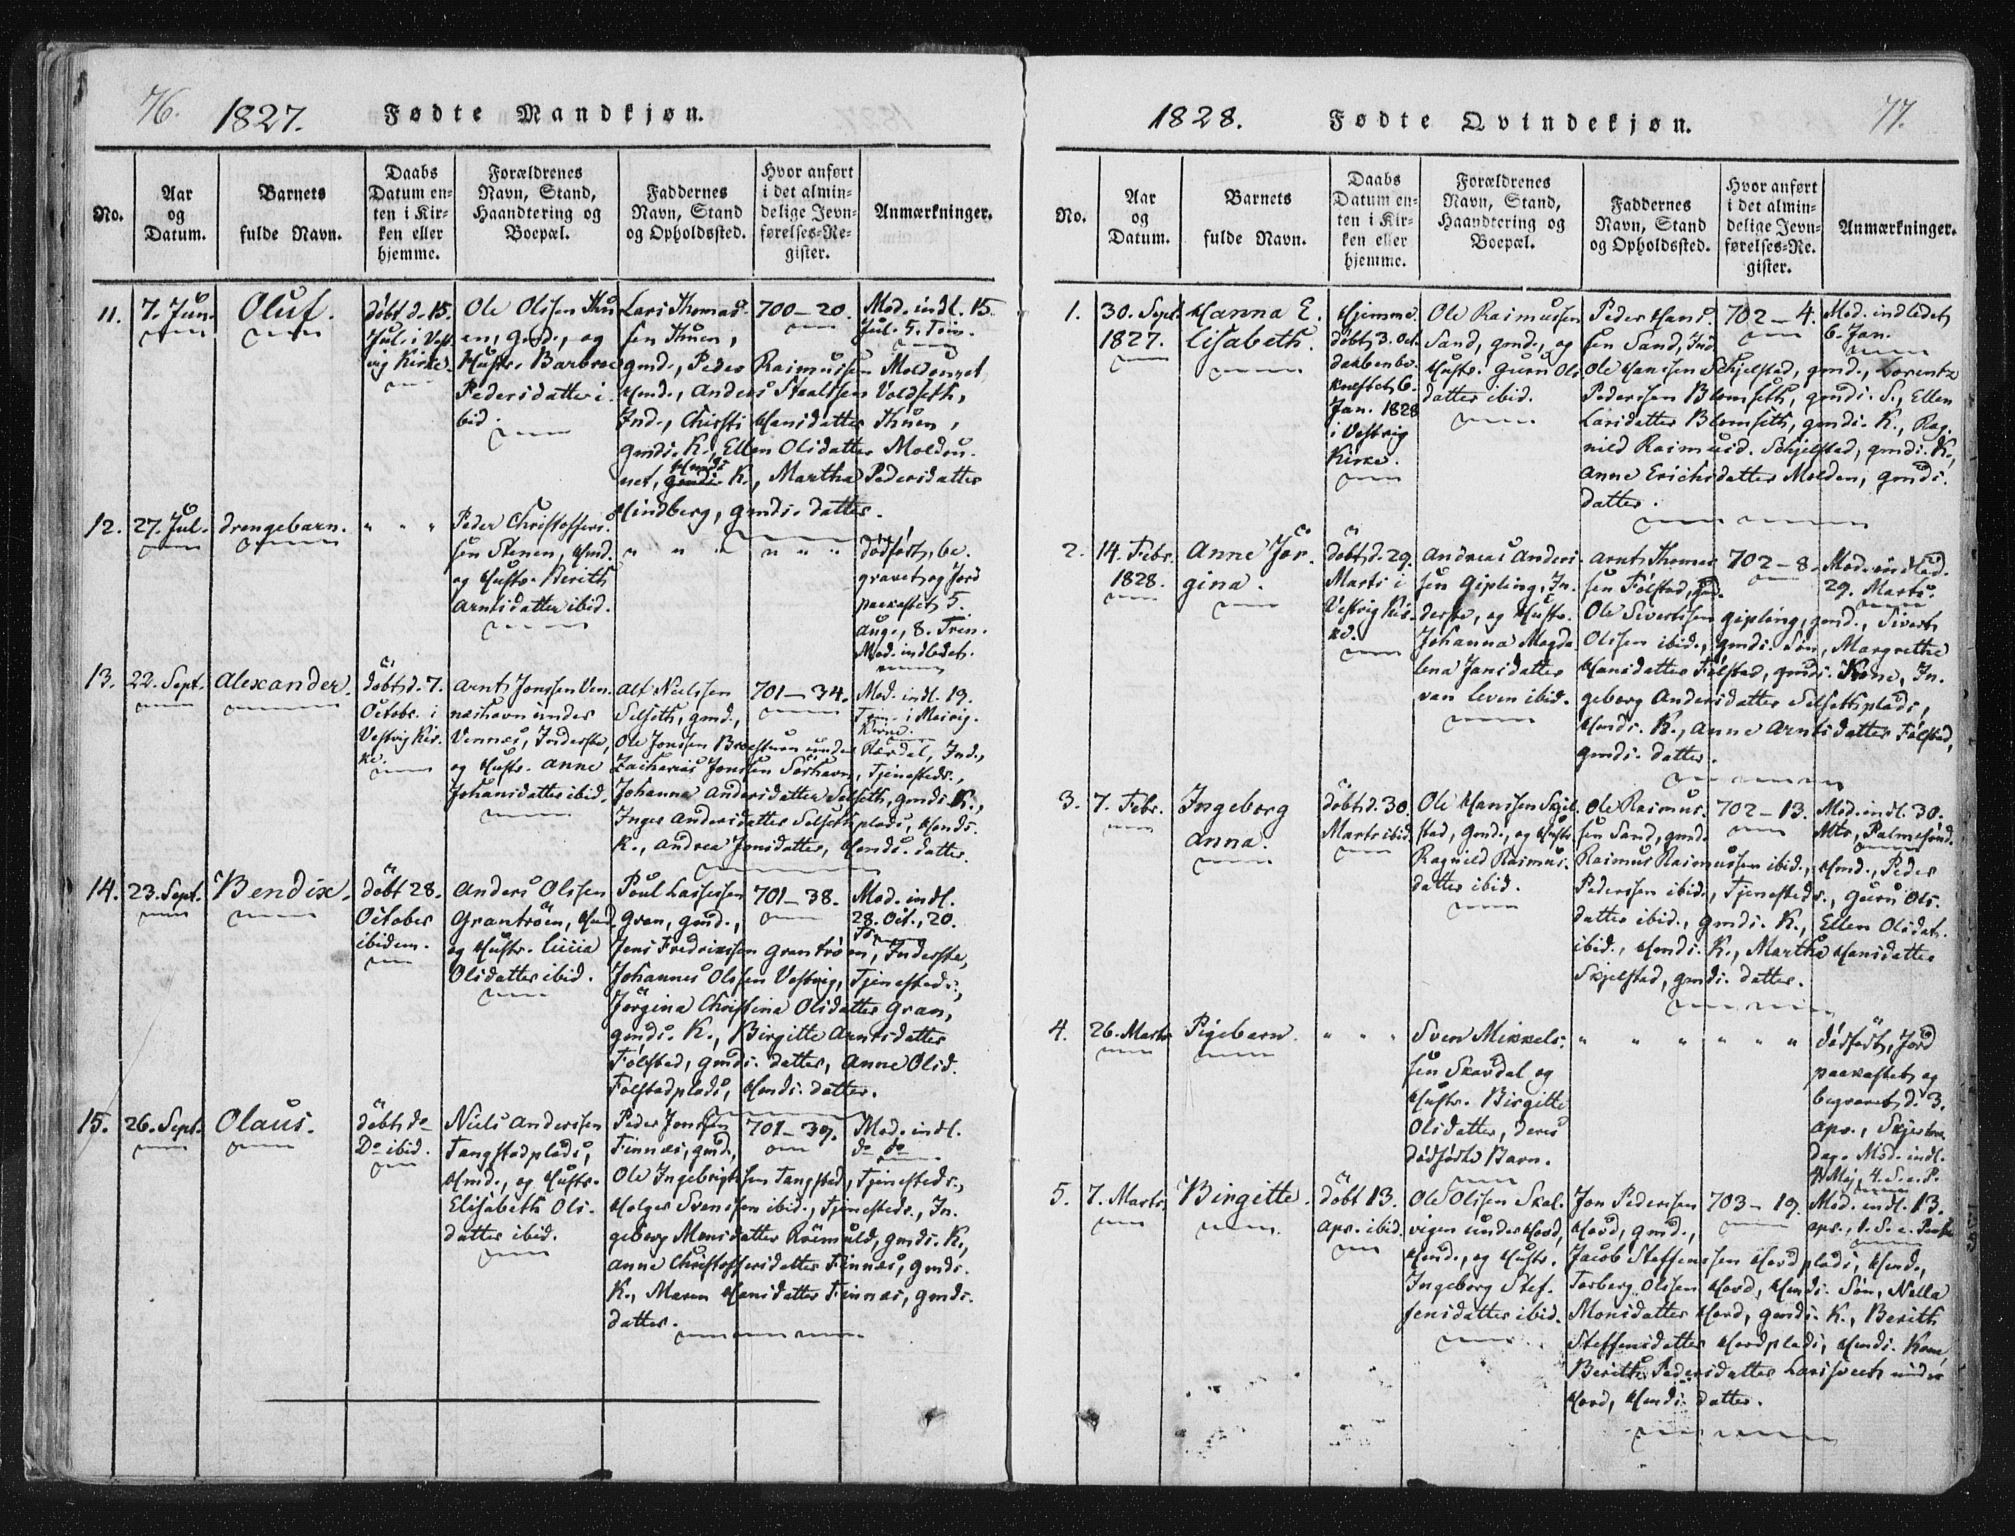 76.
1827.
Fødte Mandkjøn.
No.
Aar
og
Datum.
Barnets
fulde Navn.
Daabs
Datum en-
ten i Kir-
ken eller
hjemme.
Forældrenes
Navn, Stand,
Haandtering og
Boepæl.
Faddernes
Navn, Stand
og Opholdssted.
Hvor anført
i det almin-
delige Jevn-
førelses-Re-
gister.
Anmærkninger.
11.
7. Jun.
Oluf.
döbt d. 15.
Jul. i Vest
vig Kirke.
Ole Olssen Thu
en, gmd., og
Hustr. Barbroe
Pedersdatter i-
bid.
Lars Thomas-
sen Thuen,
gmd., Peder Rasmussen Moldounet
Hmd., Anders Staalssen Voldseth,
Ind., Christi Hansdatter Thuen,
gmds. K., Ellen Olsdatter Moldou-
net, Hmds K., Martha Pedersdatter
Hindberg, gmds. datter.
700 — 20.
Mod. indl. 15
Jul. 5. Trin.
12.
27. Jul.
drengebarn.
" " "
Peder Christoffers-
sen Stenen, Hmd.
og Hustr. Berith
Arntsdatter ibid.
" " " " " "
dödfödt, be-
gravet og Jord
paakastet 5.
Aug., 8. Trin.
Mod. indledet.
13.
22. Sept.
Alexander.
döbt d. 7.
Octobr. i
Vestvig Kir-
ke.
Arnt Jonssen Ven-
neshavn under
Vennes, Inderste,
og Hustr. Anne
Johansdatter ibid.
Alf Nielssen
Selseth, gmd.,
Ole Jonssen under
Rærdal, Ind.,
Zacharias Jonssen Sørhavn, Tjenestedr.,
Johanna Andersdatter Selseth, gmds. K.,
Inger Andersdatter Selsethplads, Hmds.
K., Andrea Jonsdatter, Hmds. datter.
701 — 34.
Mod. indl. 19.
Trin. i
Kirke.
14.
23. Sept.
Bendix.
döbt 28.
October
ibidem.
Anders Olssen
Grantröen, Hmd
og Hustr. Lucia
Olsdatter ibid.
Poul Lassessen
Gran, gmd.,
Jens Fredrikssen Grantröen, Inderste,
Johannes Olssen Vestvig, Tjenestedr.,
Jörgina Christina Olsdatter Gran,
gmds. K., Birgitte Arntsdatter
Folstad, gmds. datter, Anne Olsd.
Folstadplads, Hmds. datter.
701 — 38.
Mod. indl.
28. Oct., 20.
Tr.
15.
26. Sept.
Olaus.
döbt do
Do ibid.
Niels Anderssen
Tangstadplads,
Hmd., og Hustr.
Elisabeth Ols-
datter ibid.
Peder Jonssen
Finnæs, gmd.,
Ole Ingebrigtssen Tangstad, Tjenestedr.,
Holger Svenssen ibid., Tjenestedr., In-
geborg Monsdatter Römuld, gmds. K.,
Anne Christoffersdatter Finnæs, gmds.
K., Maren Hansdatter Finnæs, gmds.
datter.
701 — 39.
Mod. indl.
do do
1828.
Fødte Qvindekjøn.
77.
No.
Aar
og
Datum.
Barnets
fulde Navn.
Daabs
Datum en-
ten i Kir-
ken eller
hjemme.
Forældrenes
Navn, Stand,
Haandtering og
Boepæl.
Faddernes
Navn, Stand
og Opholdssted.
Hvor anført
i det almin-
delige Jevn-
førelses-Re-
gister.
Anmærkninger.
1.
30. Sept.
1827.
Hanna E.
lisabeth.
Hjemme-
döbt 3. Oct.
daaben be-
kræftet 6.
Jan. 1828
i Vestvig
Kirke.
Ole Rasmussen
Sand, gmd., og
Hustr. Guru Ols
datter ibid.
Peder Hans-
sen Sand, Ind.
Ole Hanssen Schjelstad, gmd., Lorentz
Pederssen Blomseth, gmds. S., Ellen
Larsdatter Blomseth, gmds. K., Rag-
nild Rasmusd. Schjelstad, gmds. K.,
Anne Erichsdatter Molden, gmds.
datter.
702 — 4.
Mod. indledet
6. Jan.
2.
14. Febr.
1828.
Anne Jör-
gina.
döbt d. 29.
Marts i
Vestvig Kir-
ke.
Andreas Anders-
sen Gipling, In-
derste, og Hustr.
Johanna Magda
lena Jansdatter
van Leven ibid.
Arnt Thomes-
sen Folstad, gmd.
Ole Sivertssen Gipling, gmd., Sivert
Olssen ibid., gmds. Søn, Margrethe
Hansdatter Folstad, gmds. Kone, In-
geborg Andersdatter Selsethplads,
Hmds. K., Anne Arntsdatter Folstad,
gmds. datter.
702 — 8.
Mod. indled.
29. Marts.
3.
7. Febr.
Ingeborg
Anna.
döbt d. 30.
Marts ibid.
Ole Hanssen Skjel-
stad, gmd., og Hustr.
Ragnild Rasmus-
datter ibid.
Ole Rasmus-
sen Sand, gmd.
Rasmus Rasmussen ibid., Hmd., Peder
Pederssen ibid., Tjenestedr., Guru Ols-
datter ibid., gmds. K., Ellen Olsdat.
ibid., Hmds. K., Martha Hansdatter
Skjelstad, gmds. datter.
702 — 13.
Mod. indl. 30.
Mts, Palmesönd.
4.
26. Marts
Pigebarn.
" " "
Sven Mikkels-
sen Skavdal og
Hustr. Birgitte
Olsdatter, deres
dödfödte Barn.
" " " " " "
dödfödt, Jord
paakastet og
begravet d. 3.
Apr., Skjertors-
dag. Mod. indl.
4 Maj, 4. S. e. P.
5.
7. Marts.
Birgitte.
döbt 13.
Apr. ibid.
Ole Olssen Skal-
vigen under Hovd,
Hmd., og Hustr.
Ingeborg Stef-
fensdatter ibid.
Jon Pederssen
Hovd, gmd.,
Jacob Steffenssen Hovdplads, Hmd.,
Torberg Olssen Hovd, Hmds. Søn, Nilla
Monsdatter Hovd, gmds. K., Berith
Steffensdatter Hovdplads, Hmds. Kone,
Berith Pedersdatter under
Hovd, Hmds. datter.
703 — 19.
Mod. indl. 13.
Apr., 1. S. e. Paaske